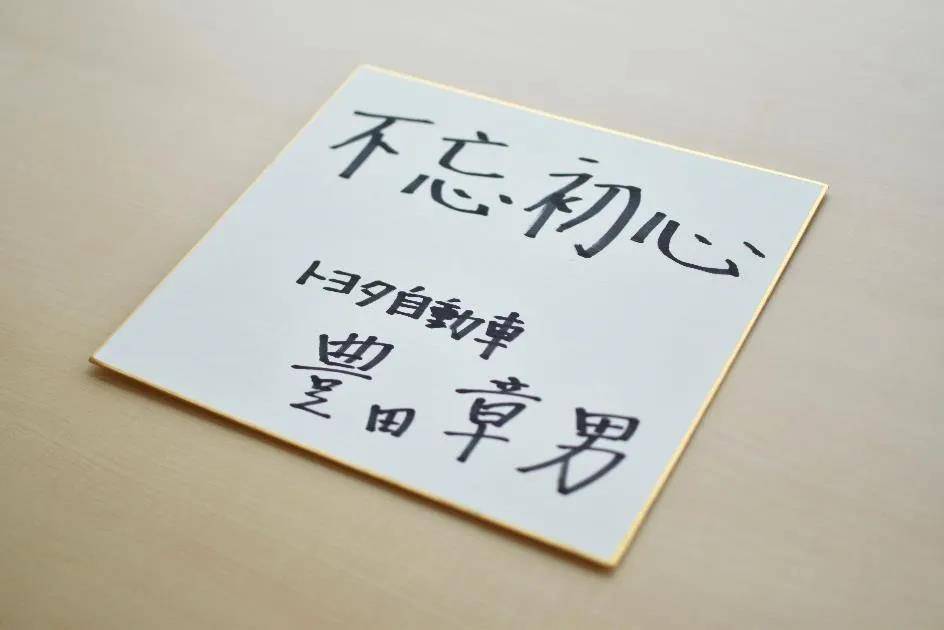 不忘初心
トヨタ自動車
豊田章男